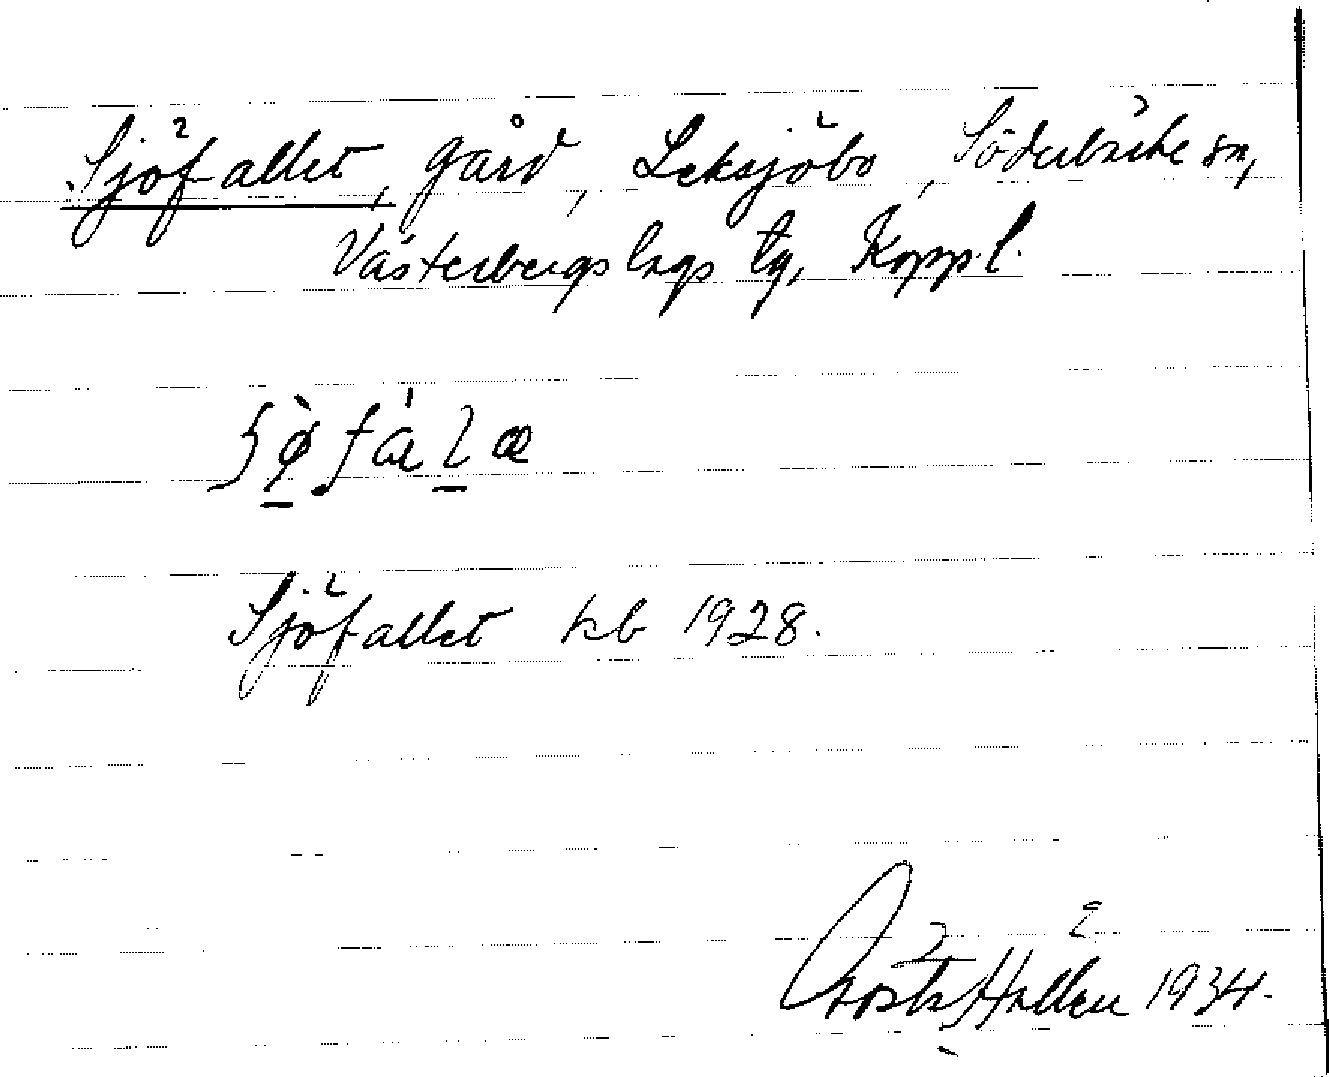 Sjöfallet, gård, Leksjöbo, Söderbärke sn,
Västerbergslags tg, Kopp. l.
Sjöfallet kb 1928.
Gösta Hallén 1934.